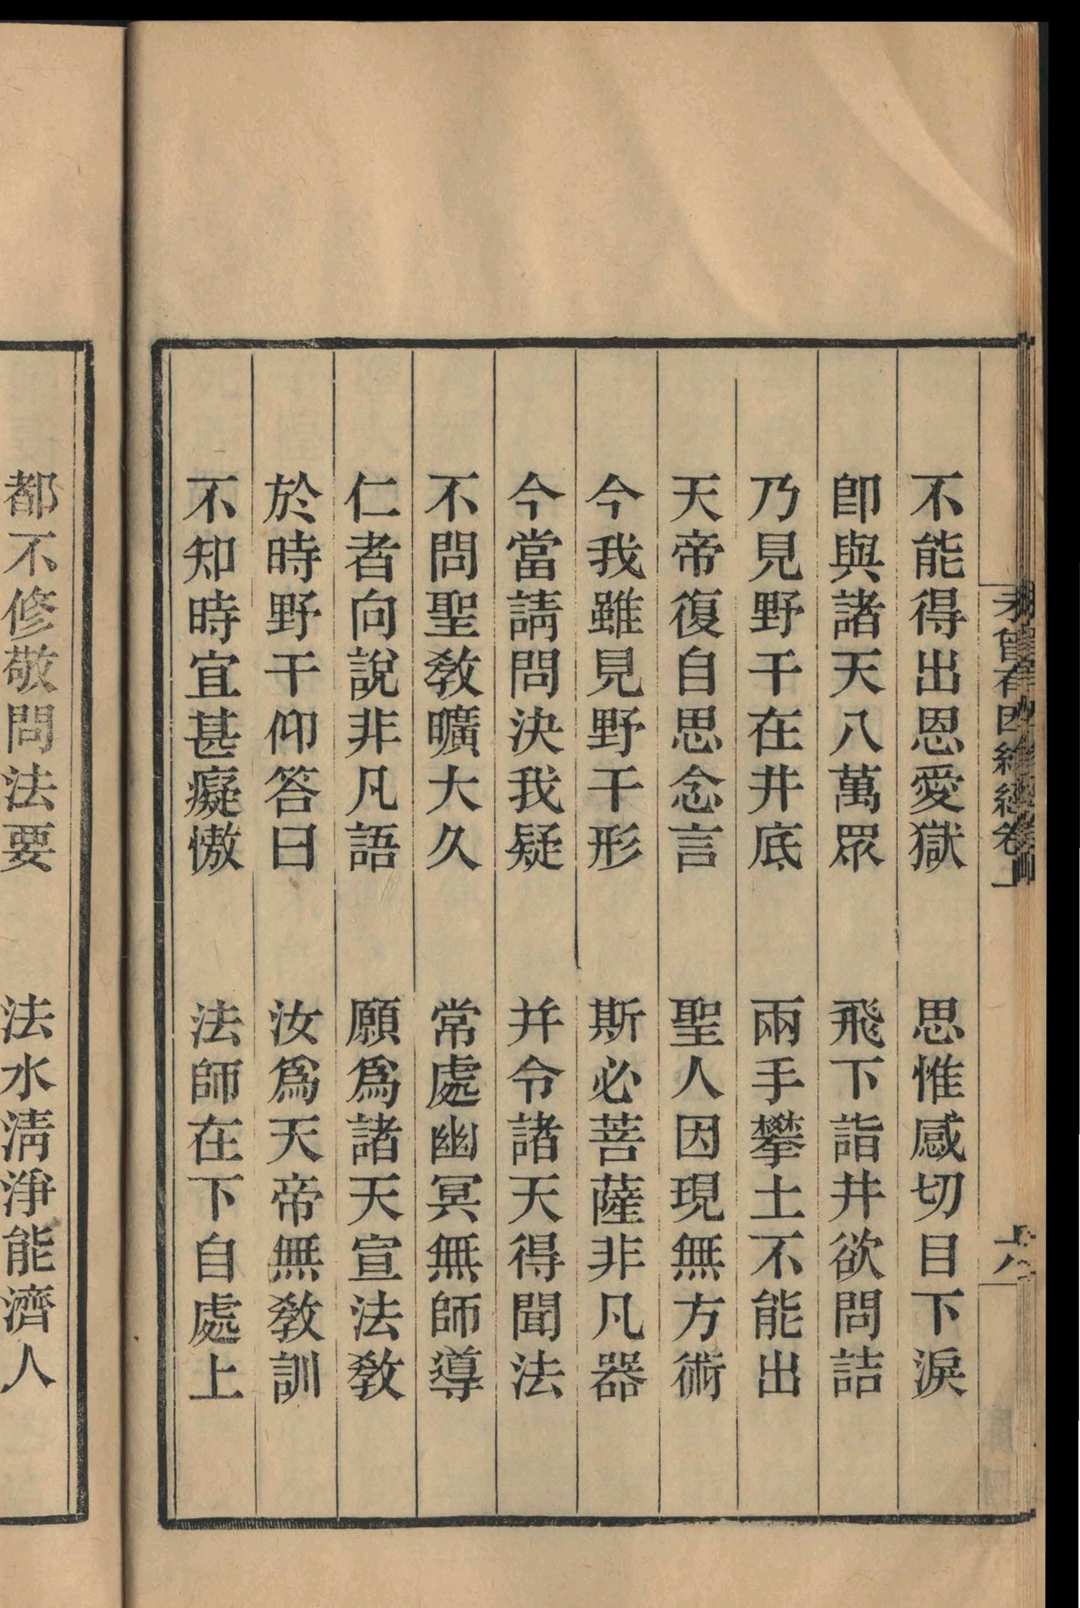 未曾有因緣經卷上
十八
不能得出恩愛獄　思惟感切目下淚
卽與諸天八萬眾　飛下詣井欲問詰
乃見野干在井底　兩手攀土不能出
天帝復自思念言　聖人因現無方術
今我雖見野干形　斯必菩薩非凡器
今當請問決我疑　幷令諸天得聞法
不問聖敎曠大久　常處幽冥無師導
仁者向說非凡語　願爲諸天宣法敎
於時野干仰答曰　汝爲天帝無敎訓
不知時宜甚癡慠　法師在下自處上
都不修敬問法要　法水淸淨能濟人